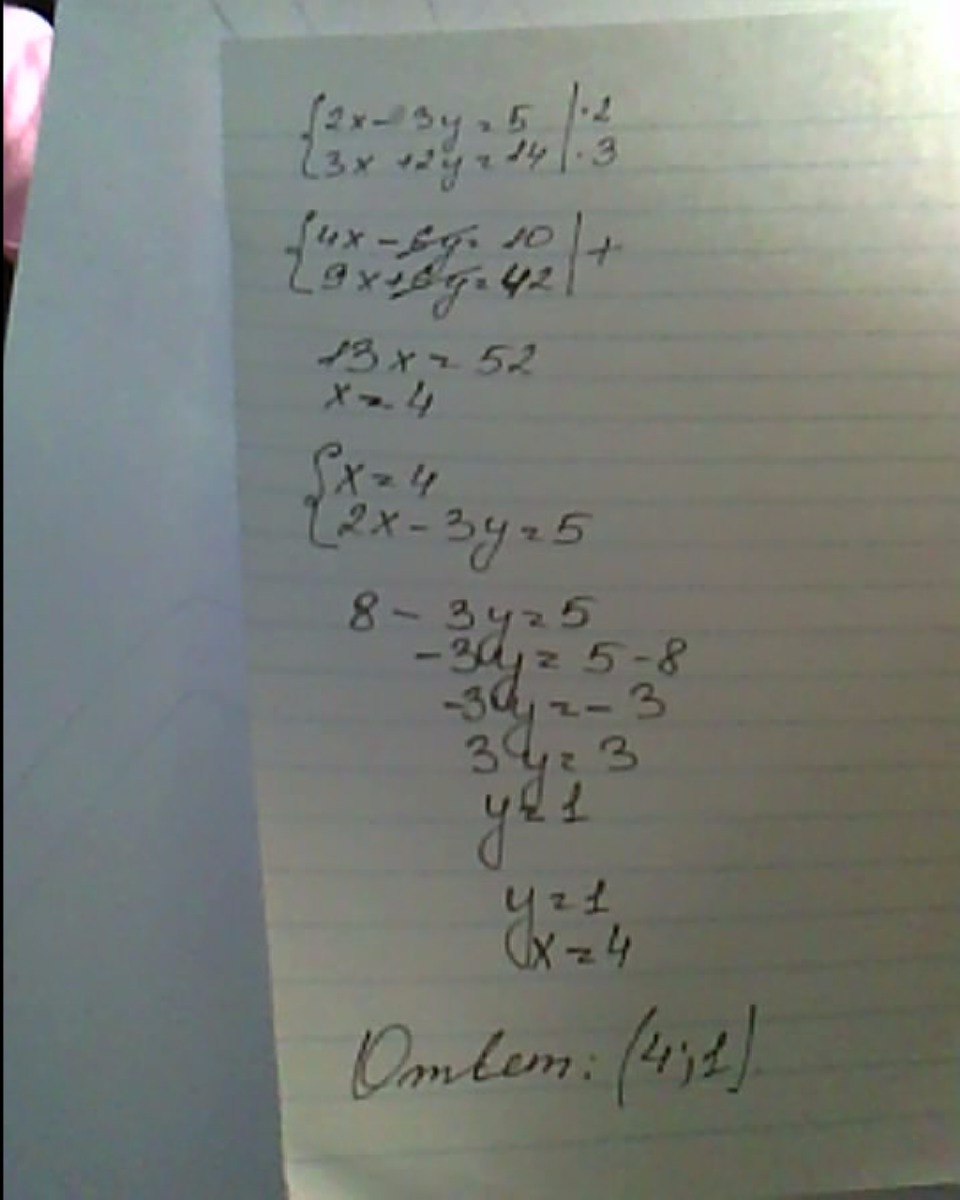 {2x - 3y = 5 | · 2
{3x + 2y = 14 | · 3
{4x - 6y = 10 | +
{9x + 6y = 42
13x = 52
x = 4
{x = 4
{2x - 3y = 5
8 - 3y = 5
-3y = 5 - 8
-3y = -3
3y = 3
y = 1
y = 1
x = 4
Ответ: (4; 1)